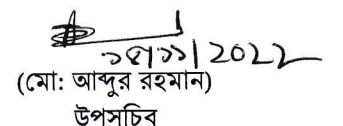 ২৪/১১/2022
(মো: আব্দুর রহমান)
উপসচিব